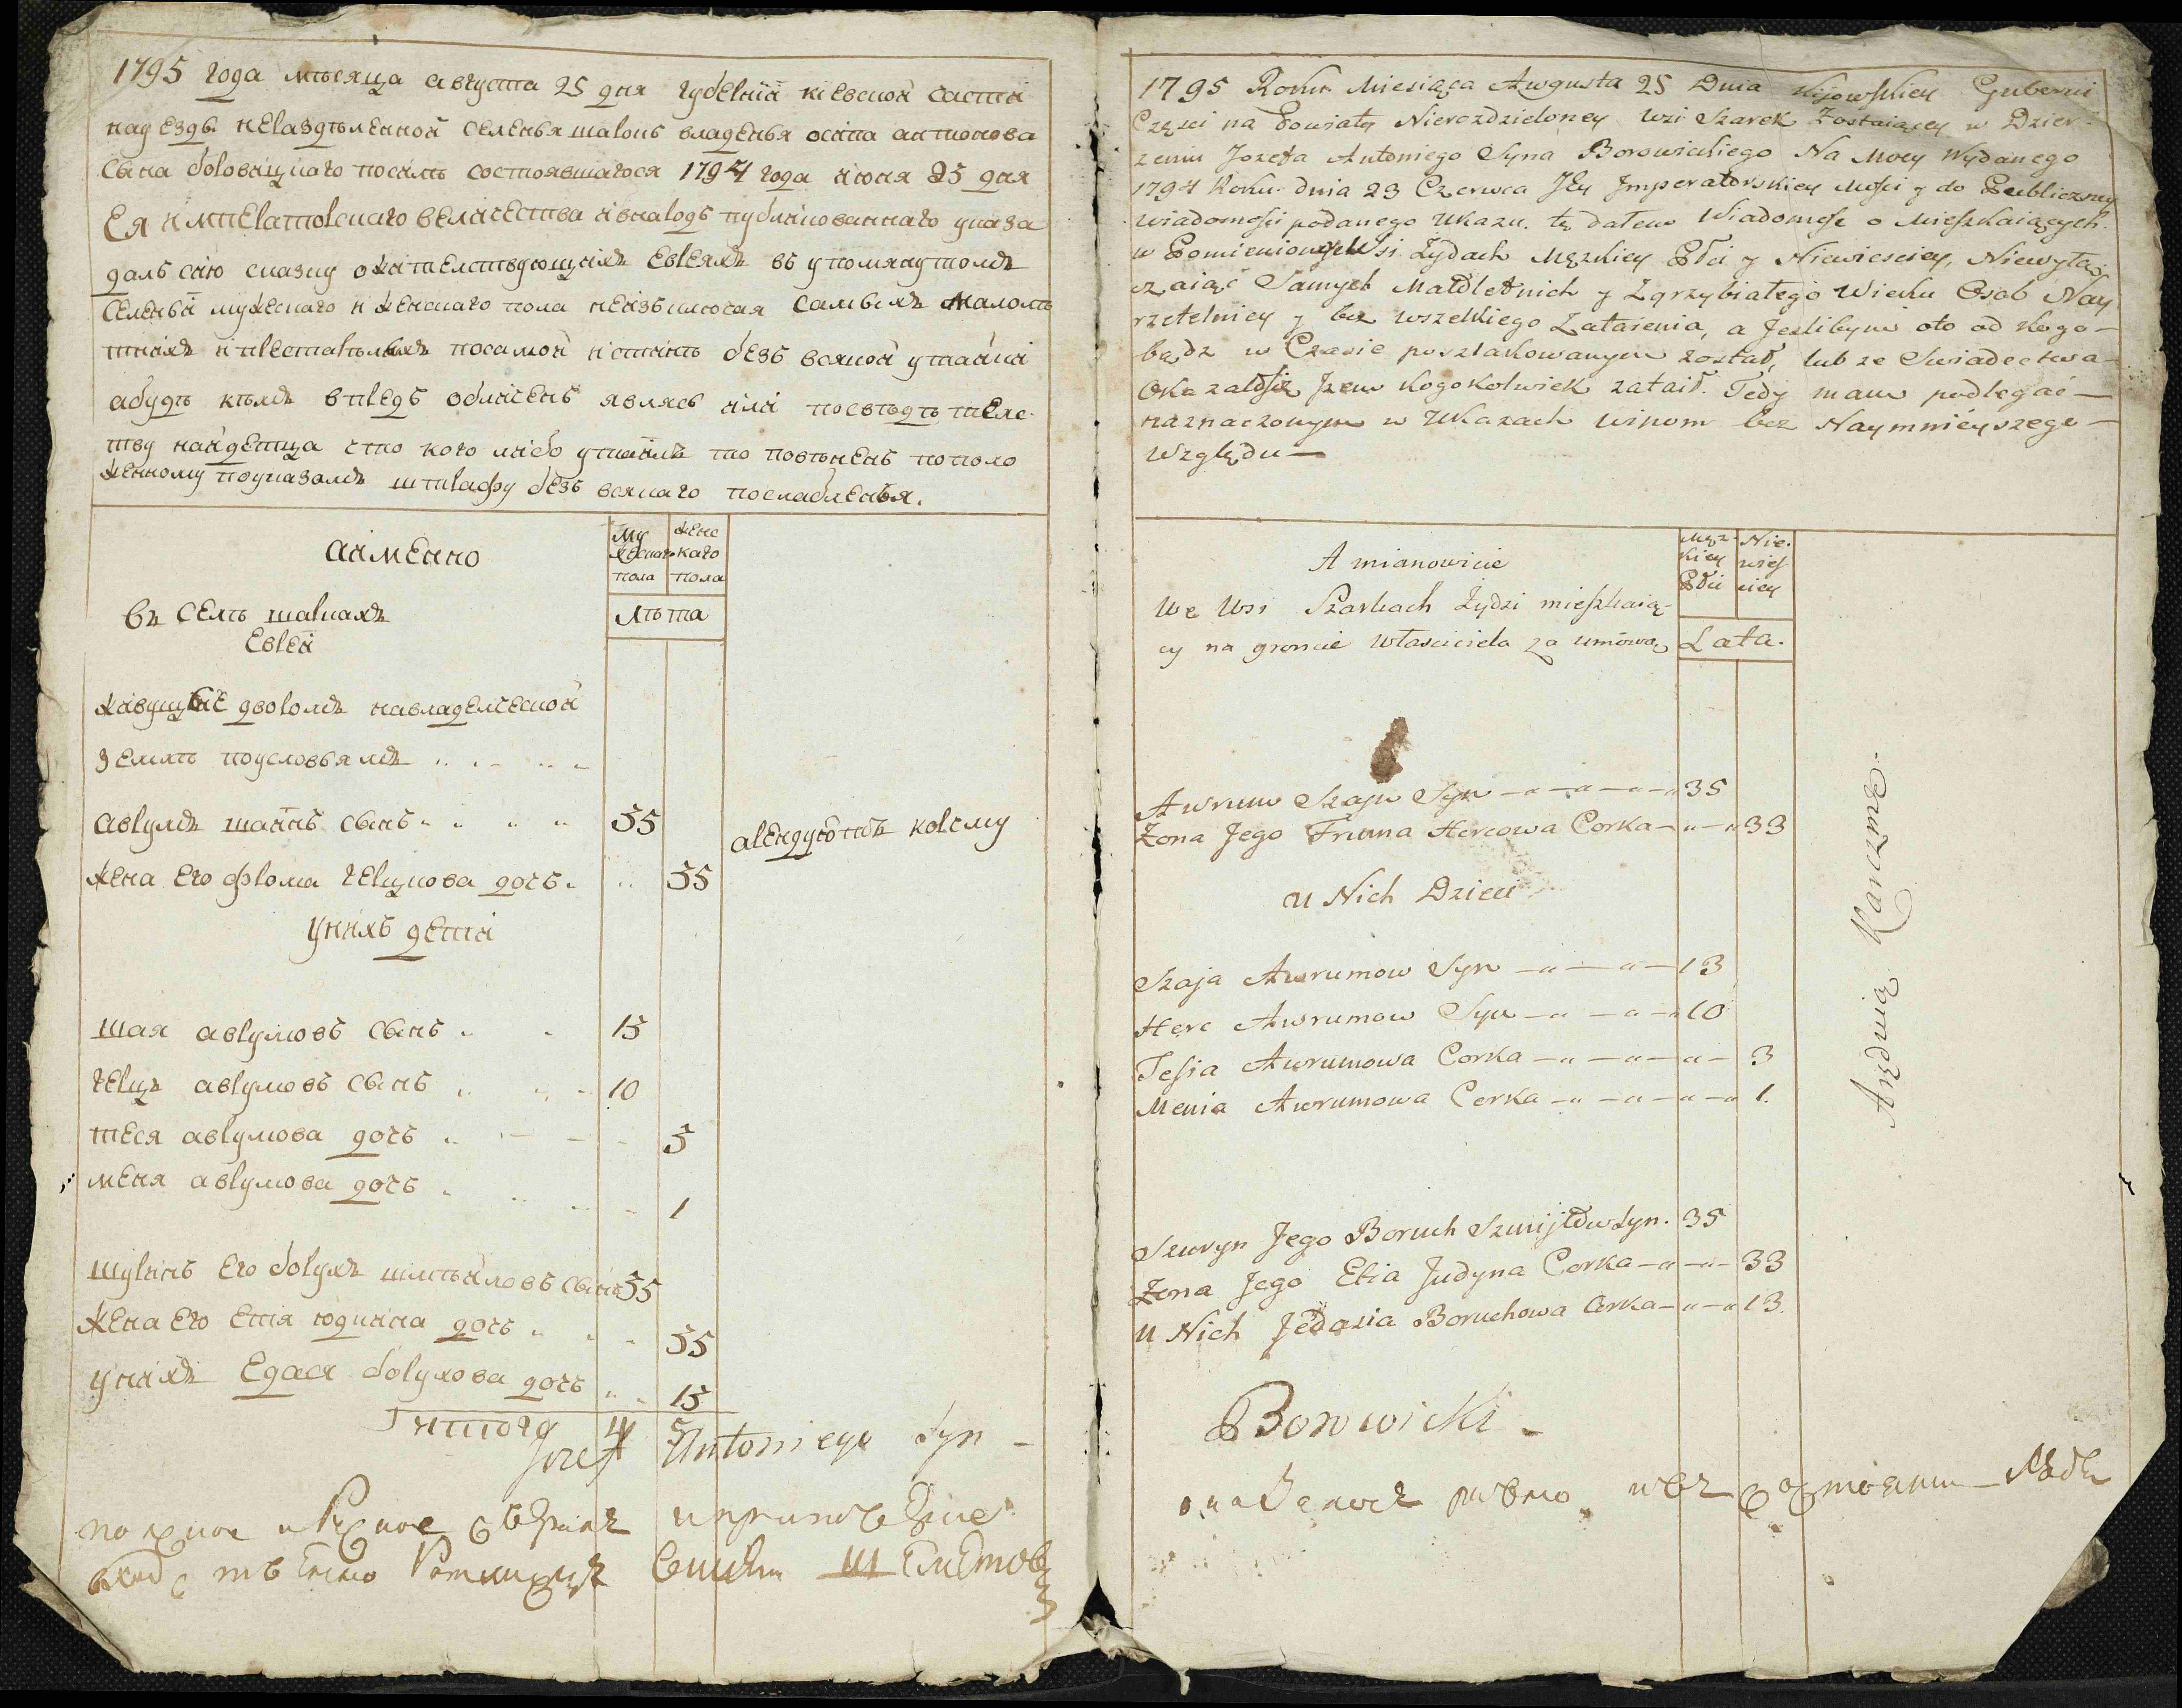 1795 года мѣсяца августа 25 дня губернїи кїевской части
на уезды неразделенной селенья шарокъ владенья осипа антонова
сына боровицкаго посиле состоявшагося 1794 года июня 23 дня
Ея императорскаго величества и внародъ публикованнаго указа
далъ сию сказку о жителствующихъ евреяхъ въ упомянутомъ
селеньи мужескаго и женскаго пола неизъключая самыхъ малолѣ
тнихъ и престарелыхъ посамой истинѣ безъ всякой утайки
абудѣ кѣмъ впредъ обличенъ явлюсь или посвѣдѣтелс
тву найдетца что кого либо утаилъ то повѣненъ пополо
женному поуказамъ штрафу безъ всякаго послабленья.
аименно
Му
жескаго
пола
женс
каго
пола
лѣта
въ селѣ шаркахъ
евреи
живущые дворомъ навладелческой
землѣ поусловьямъ
аврумъ шаинъ сынъ 35
жена его фрома герцкова дочь 33
арендуютъ корчму
унихъ дети
шая аврумовъ сынъ 13
герцъ аврумовъ сынъ 10
теся аврумова дочь 3
меня аврумова дочь 1
шуринъ его борухъ шмѣиловъ сынъ 35
жена его етя юдкина дочь 33
унихъ едася борухова дочь 13
Итого 4 5
Jozef Antoniego Syn
1795 Roku Miesiąca Awgusta 25 Dnia Kijowskiey Gubernii
Częsci na Powiaty Nierozdzieloney wsi Szarek Zostaiącey w Dzier-
zeniu Jozefa Antoniego Syna Borowickiego Na Mocy Wydanego
1794 Roku dnia 23 Czerwca Jey Imperatorskiey Mosci y do Publiczney
wiadomosci podanego Ukazu. tę dałem Wiadomosc o Mieszkaiących
w Pomienioney Wsi Zydach Męzkiey Płci y Niewiesciey, Niewyłą
czaiąc Samych Małoletnich y Zgrzybiałego Wieku Osob Nay
rzetelniey y bez wszelkiego Zataienia, a Jezlibym oto od kogo-
bądz w Czasie poszlakowanym został, lub ze Swiadectwa
Okazałosię Jzem kogokolwiek zataił. Tedy mam podlegać
naznaczonym w Ukazach winom bez Naymnieyszego
Względu
A mianowicie
Męz-
kiey
Płci
Nie-
wies
ciey
Lata.
We Wsi Szarkach Żydzi mieszkaią-
cy na groncie Własciciela za umową
Awrum Szajn Syn 35
Zona Jego Fruma Hercowa Corka 33
u Nich Dzieci
Szaja Awrumow Syn 13
Herc Awrumow Syn 10
Tesia Awrumowa Corka 3
Menia Awrumowa Corka 1.
Szuryn Jego Boruch Szmijłow Syn. 35
Zona Jego Etia Judyna Corka 33
u Nich Jedasia Boruchowa Corka 13.
Aręduią Karczmę.
Borowicki